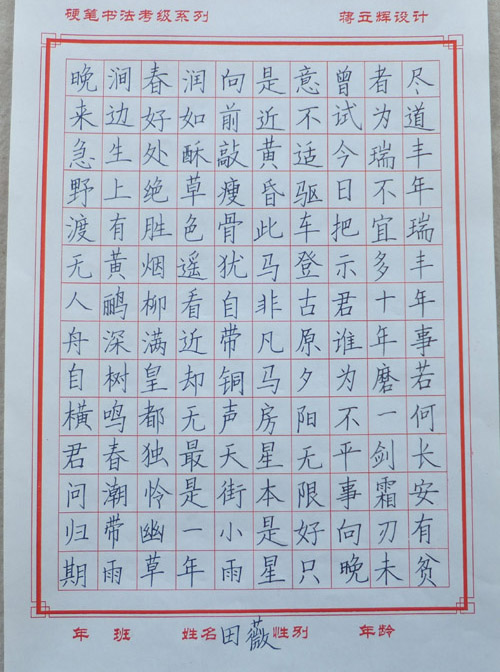 硬笔书法考级系列 蒋立辉设计
尽道丰年瑞丰年事若何长安有贫
者为瑞不宜多十年磨一剑霜刃未
曾试今日把示君谁为不平事向晚
意不适驱车登古原夕阳无限好只
是近黄昏此马非凡马房星本是星
向前敲瘦骨犹自带铜声天街小雨
润如酥草色遥看近却无最是一年
春好处绝胜烟柳满皇都独怜幽草
涧边生上有黄鹂深树鸣春潮带雨
晚来急野渡无人舟自横君问归期
年 班 姓名田薇性别 年龄